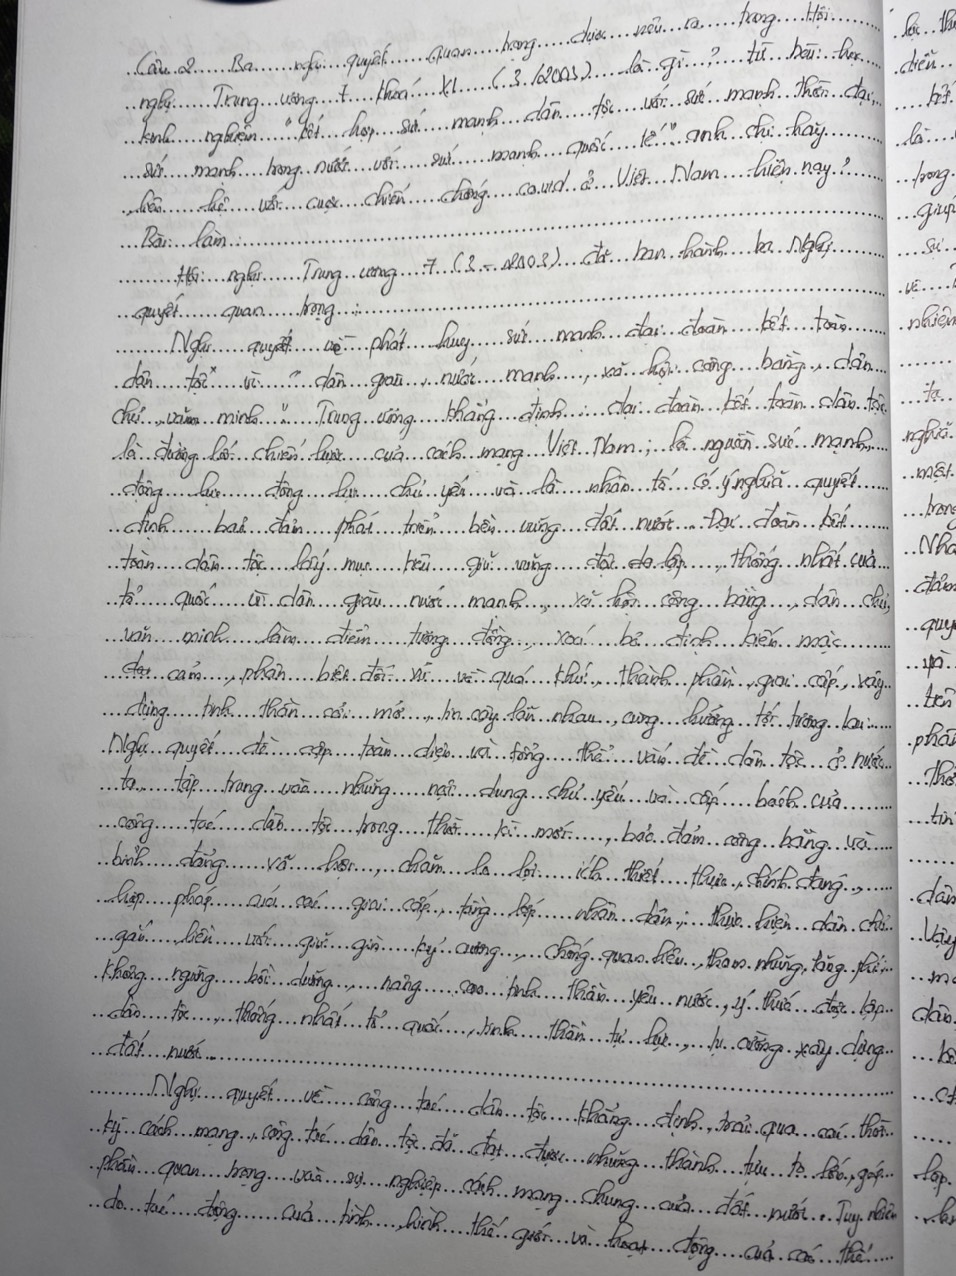 Câu 2. Ba nghị quyết quan trọng được nêu ra trong Hội
nghị Trung ương 7 khoá XI (3/2003) là gì? từ bài học
kinh nghiệm "kết hợp sức mạnh dân tộc với sức mạnh thời đại,
sức mạnh trong nước với sức mạnh quốc tế" anh chị hãy
liên hệ với cuộc chiến chống covid ở Việt Nam hiện nay?
Bài làm:
Hội nghị Trung ương 7 (3-2003) đã ban hành ba Nghị
quyết quan trọng:
Nghị quyết về phát huy sức mạnh đại đoàn kết toàn
dân tộc vì "dân giàu, nước mạnh, xã hội công bằng, dân
chủ, văn minh". Trung ương khẳng định: đại đoàn kết toàn dân tộc
là đường lối chiến lược của cách mạng Việt Nam; là nguồn sức mạnh,
động lực động lực chủ yếu và là nhân tố có ý nghĩa quyết
định bảo đảm phát triển bền vững đất nước. Đại đoàn kết
toàn dân tộc lấy mục tiêu giữ vững độc lập, thống nhất của
tổ quốc vì dân giàu nước mạnh, xã hội công bằng, dân chủ,
văn minh làm điểm tương đồng, xoá bỏ định kiến mặc
cảm, phân biệt đối xử về quá khứ, thành phần, giai cấp, xây
dựng tinh thần cởi mở, tin cậy lẫn nhau, cùng hướng tới tương lai.
Nghị quyết đề cập toàn diện và tổng thể vấn đề dân tộc ở nước
ta, tập trung vào những nội dung chủ yếu và cấp bách của
công tác dân tộc trong thời kì mới, bảo đảm công bằng và
bình đẳng xã hội, chăm lo lợi ích thiết thực, chính đáng,
hợp pháp của các giai cấp, tầng lớp nhân dân; thực hiện dân chủ
gắn liền với giữ gìn kỷ cương, chống quan liêu, tham nhũng, lãng phí;
không ngừng bồi dưỡng, nâng cao tinh thần yêu nước, ý thức độc lập
dân tộc, thống nhất tổ quốc, tinh thần tự lực, tự cường xây dựng
đất nước.
Nghị quyết về công tác dân tộc khẳng định, trải qua các thời
kỳ cách mạng, công tác dân tộc đã đạt được những thành tựu to lớn, góp
phần quan trọng vào sự nghiệp cách mạng chung của đất nước. Tuy nhiên
do tác động của tình hình thế giới và hoạt động của các thế